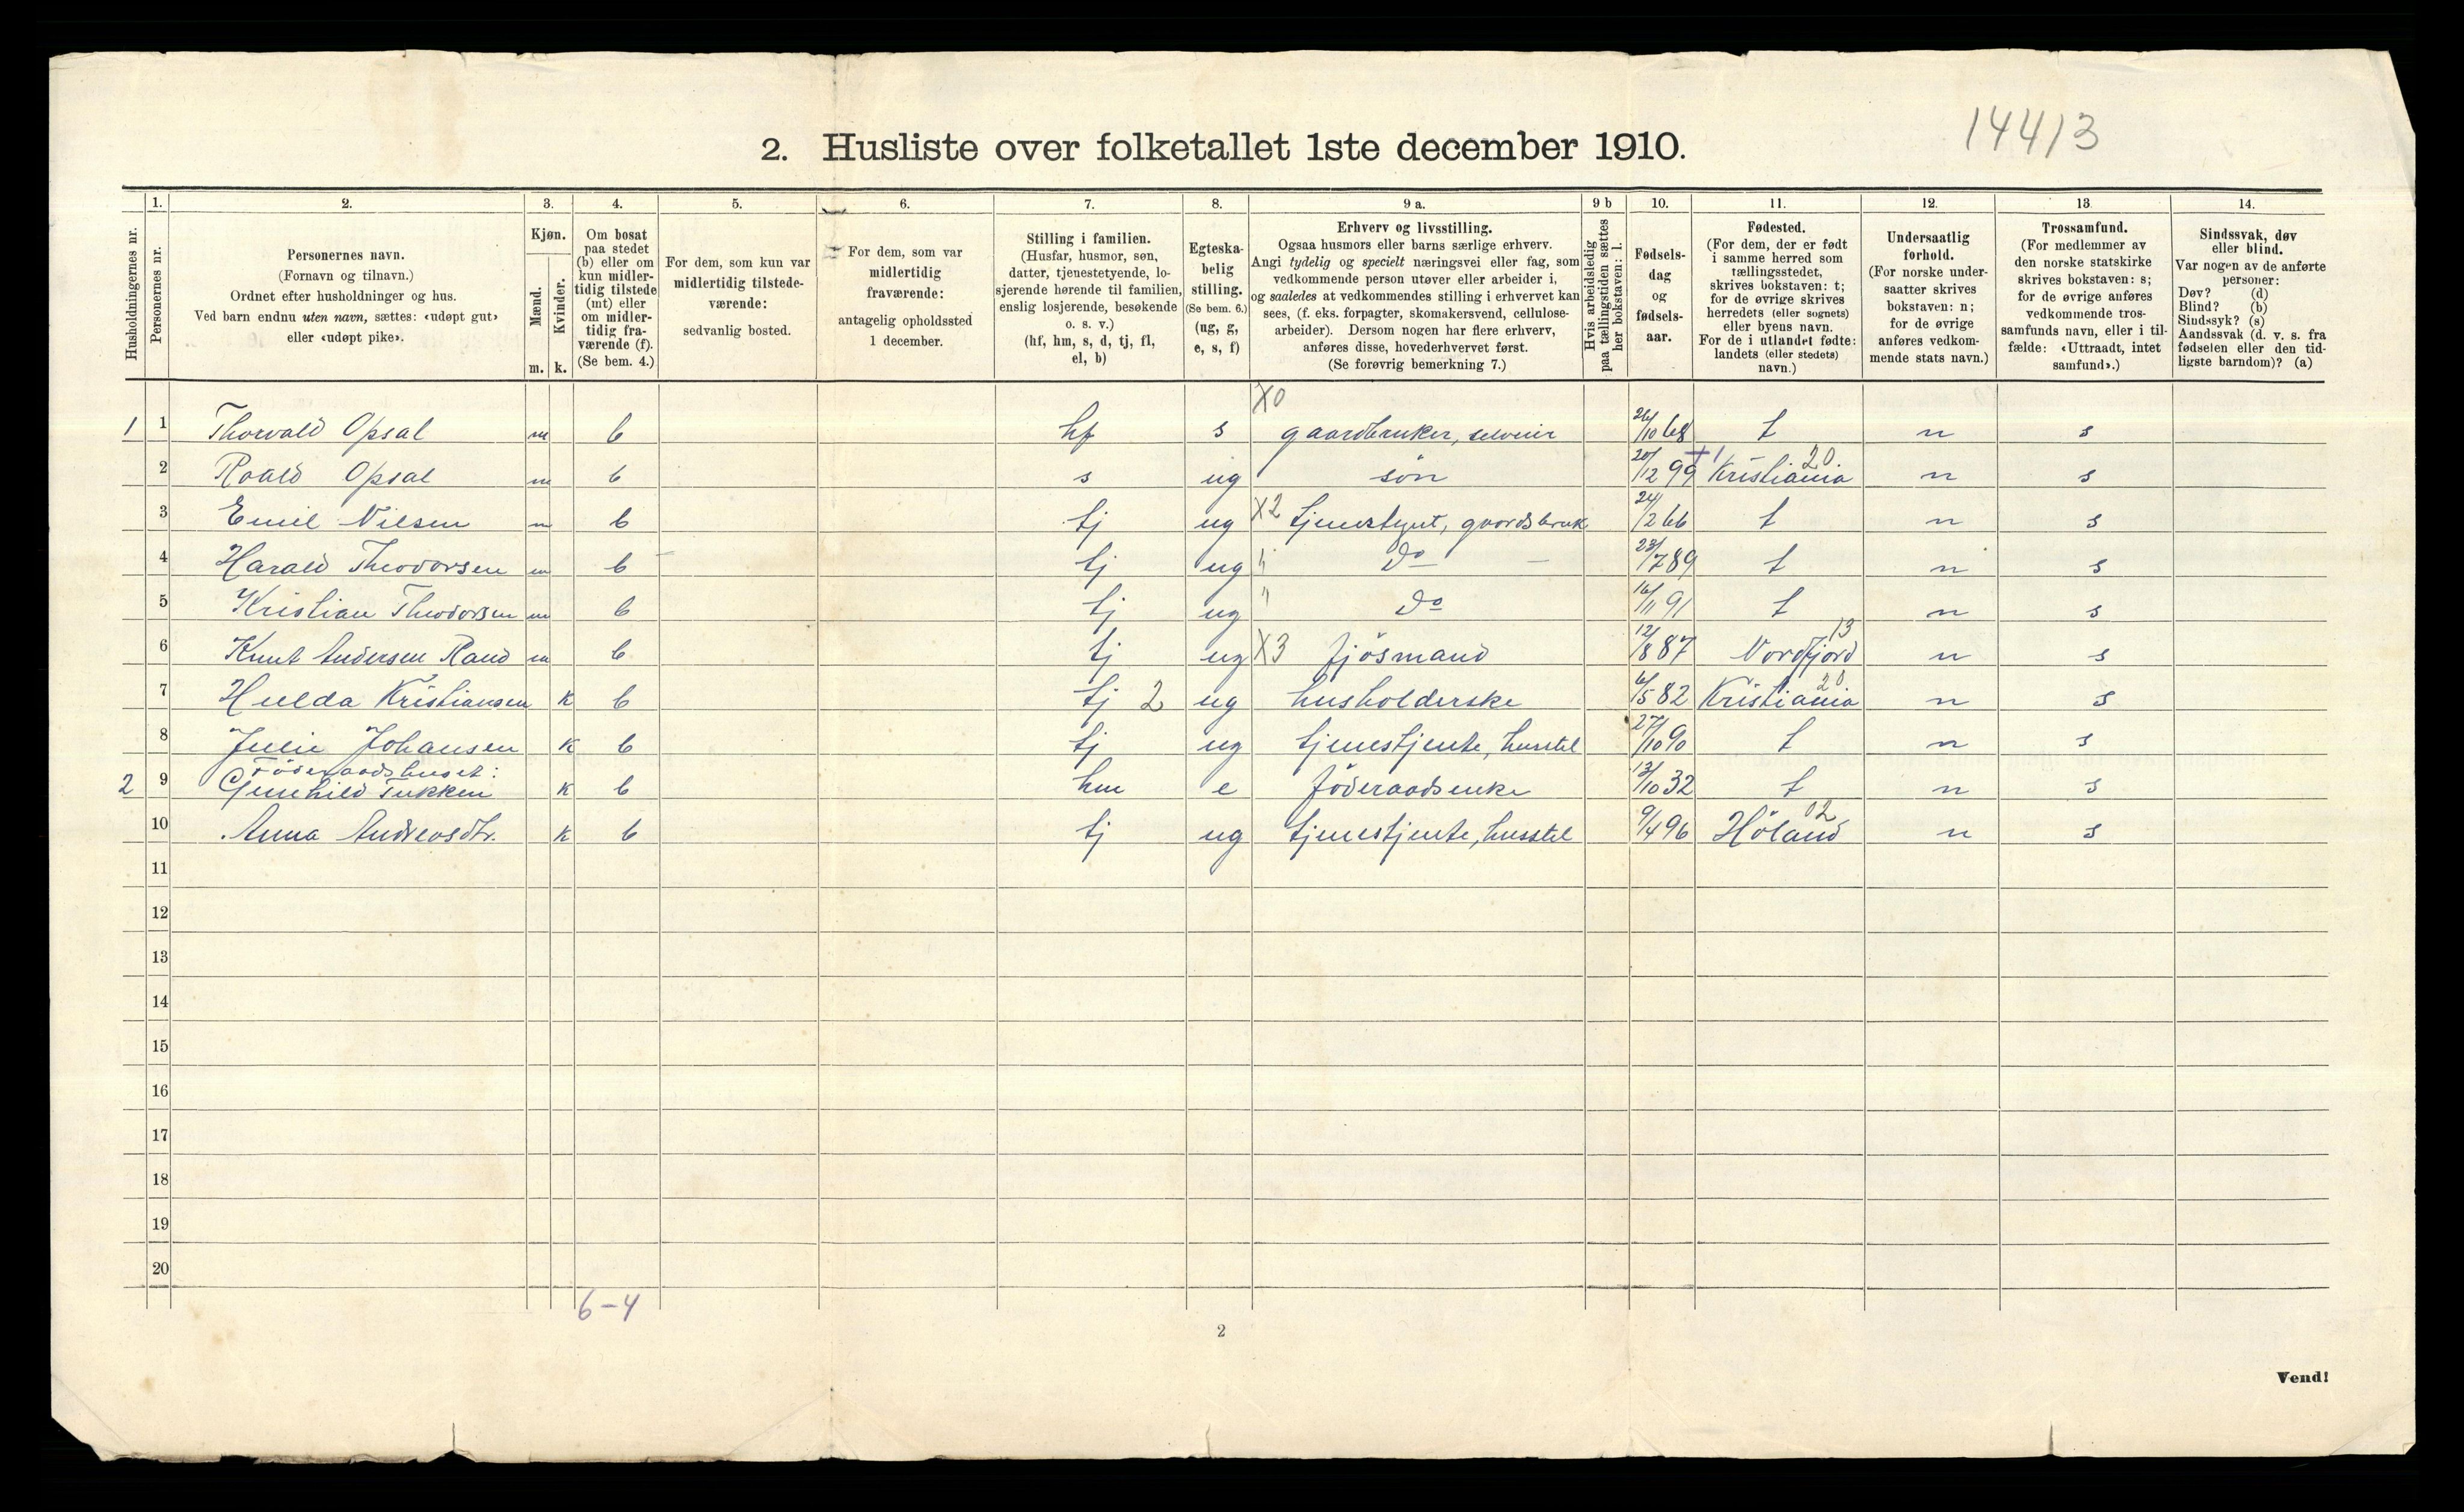 14413
2. Husliste over folketallet 1ste december 1910.
Husholdningernes nr.
1.
Personernes nr.
2.
Personernes navn.
(Fornavn og tilnavn.)
Ordnet efter husholdninger og hus.
Ved barn endnu uten navn, sættes: «udøpt gut»
eller «udøpt pike».
3.
Kjøn.
Mænd.
Kvinder.
m. k.
4.
Om bosat
paa stedet
(b) eller om
kun midler-
tidig tilstede
(mt) eller
om midler-
tidig fra-
værende (f).
(Se bem. 4.)
5.
For dem, som kun var
midlertidig tilstede-
værende:
sedvanlig bosted.
6.
For dem, som var
midlertidig
fraværende:
antagelig opholdssted
1 december.
7.
Stilling i familien.
(Husfar, husmor, søn,
datter, tjenestetyende, lo-
sjerende hørende til familien,
enslig losjerende, besøkende
o. s. v.)
(hf, hm, s, d, tj, fl,
el, b)
8.
Egteska-
belig
stilling.
(Se bem. 6.)
(ug, g,
e, s, f)
9 a.
Erhverv og livsstilling.
Ogsaa husmors eller barns særlige erhverv.
Angi tydelig og specielt næringsvei eller fag, som
vedkommende person utøver eller arbeider i,
og saaledes at vedkommendes stilling i erhvervet kan
sees, (f. eks. forpagter, skomakersvend, cellulose-
arbeider). Dersom nogen har flere erhverv,
anføres disse, hovederhvervet først.
(Se forøvrig bemerkning 7.)
9 b
Hvis arbeidsledig
paa tællingstiden sættes
her bokstaven: l.
10.
Fødsels-
dag
og
fødsels-
aar.
11.
Fødested.
(For dem, der er født
i samme herred som
tællingsstedet,
skrives bokstaven: t;
for de øvrige skrives
herredets (eller sognets)
eller byens navn.
For de i utlandet fødte:
landets (eller stedets)
navn.)
12.
Undersaatlig
forhold.
(For norske under-
saatter skrives
bokstaven: n;
for de øvrige
anføres vedkom-
mende stats navn.)
13
Trossamfund.
(For medlemmer av
den norske statskirke
skrives bokstaven: s;
for de øvrige anføres
vedkommende tros-
samfunds navn, eller i til-
fælde: «Uttraadt, intet
samfund».)
14.
Sindssvak, døv
eller blind.
Var nogen av de anførte
personer:
Døv? (d)
Blind? (b)
Sindssyk? (s)
Aandssvak (d. v. s. fra
fødselen eller den tid-
ligste barndom)? (a)
X0
1 1 Thorvald Opsal m b hf s gaardbruker, selveier 26/10 68 t n s
2 Roald Opsal m b s ug søn 20/12 99 Kristiania 20 n s
3 Emil Nilsen m b tj ug X2 tjenestgut, gaardsbruk 24/2 66 t n s
4 Harald Theodorsen m b tj ug " Do 23/7 89 t n s
5 Kristian Theodorsen m b tj ug " Do 16/11 91 t n s
6 Knut Andersen Rand m b tj ug X3 fjøsmand 12/8 87 Nordfjord 13 n s
7 Hulda Kristiansen k b tj 2 ug husholderske 6/5 82 Kristiania 20 n s
8 Julie Johansen k b tj ug tjenestjente, husstel 27/10 90 t n s
Föderaadshuset:
2 9 Gunhild Tukken k b hm e föderaadsenke 13/10 32 t n s
10 Anna Andreasdtr. k b tj ug tjenestjente, husstel 9/4 96 Höland 02 n s
11
12
13
14
15
16
17
18
19
20
6-4
2
Vend!